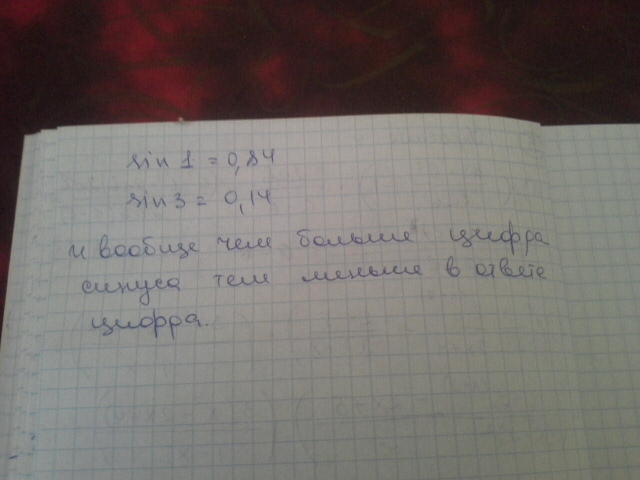 sin 1 = 0,84
sin 3 = 0,14
и вообще чем больше цифра
синуса тем меньше в ответе
цифра.